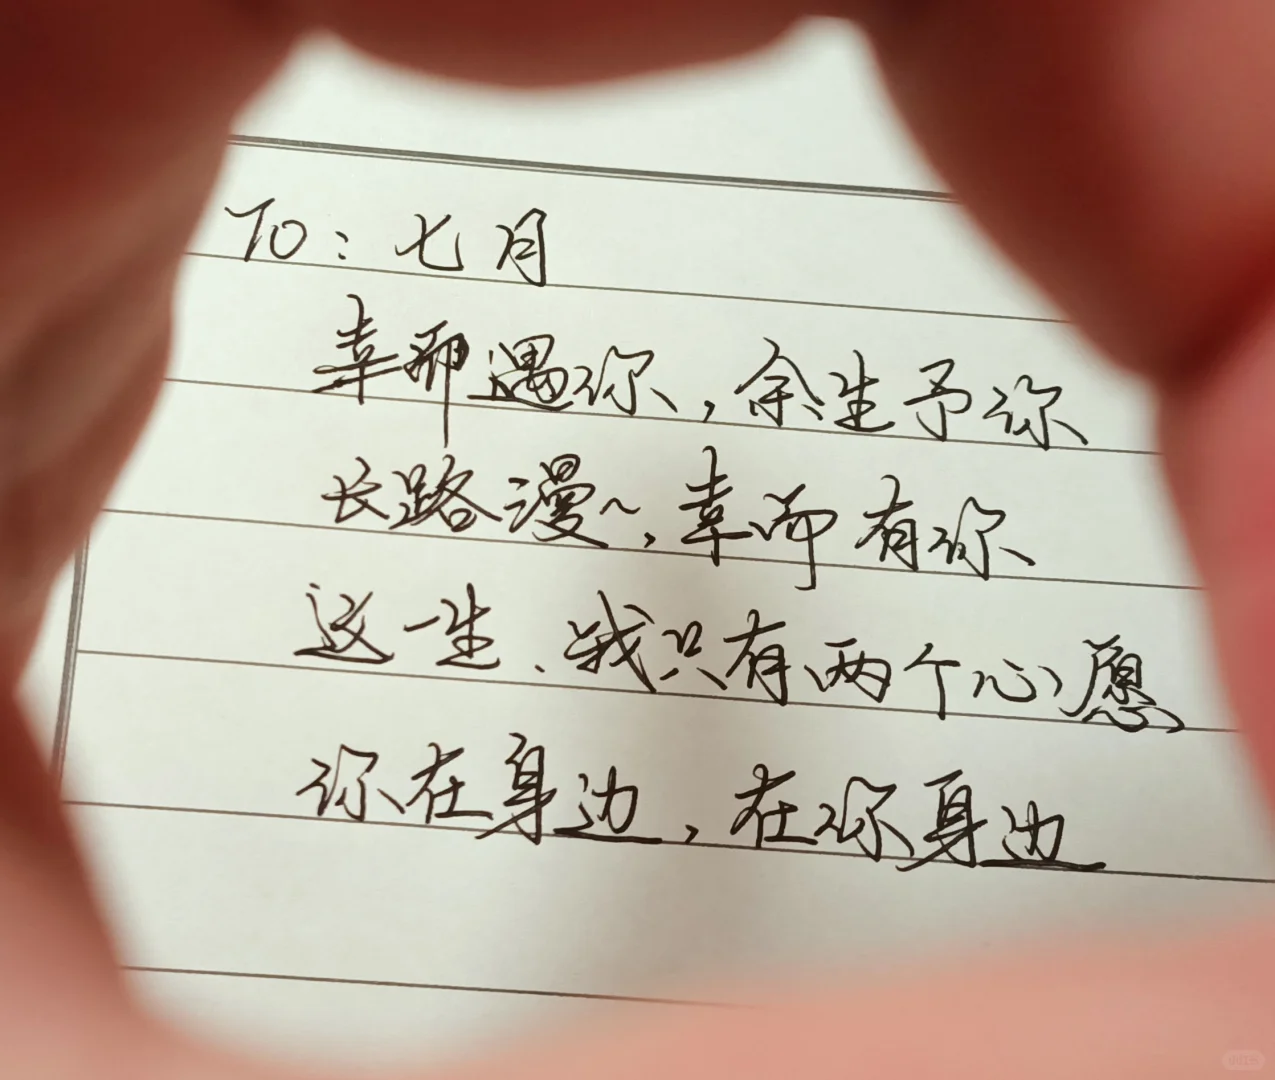 To：七月
幸而遇你，余生予你
长路漫~，幸而有你
这一生、我只有两个心愿
你在身边，在你身边